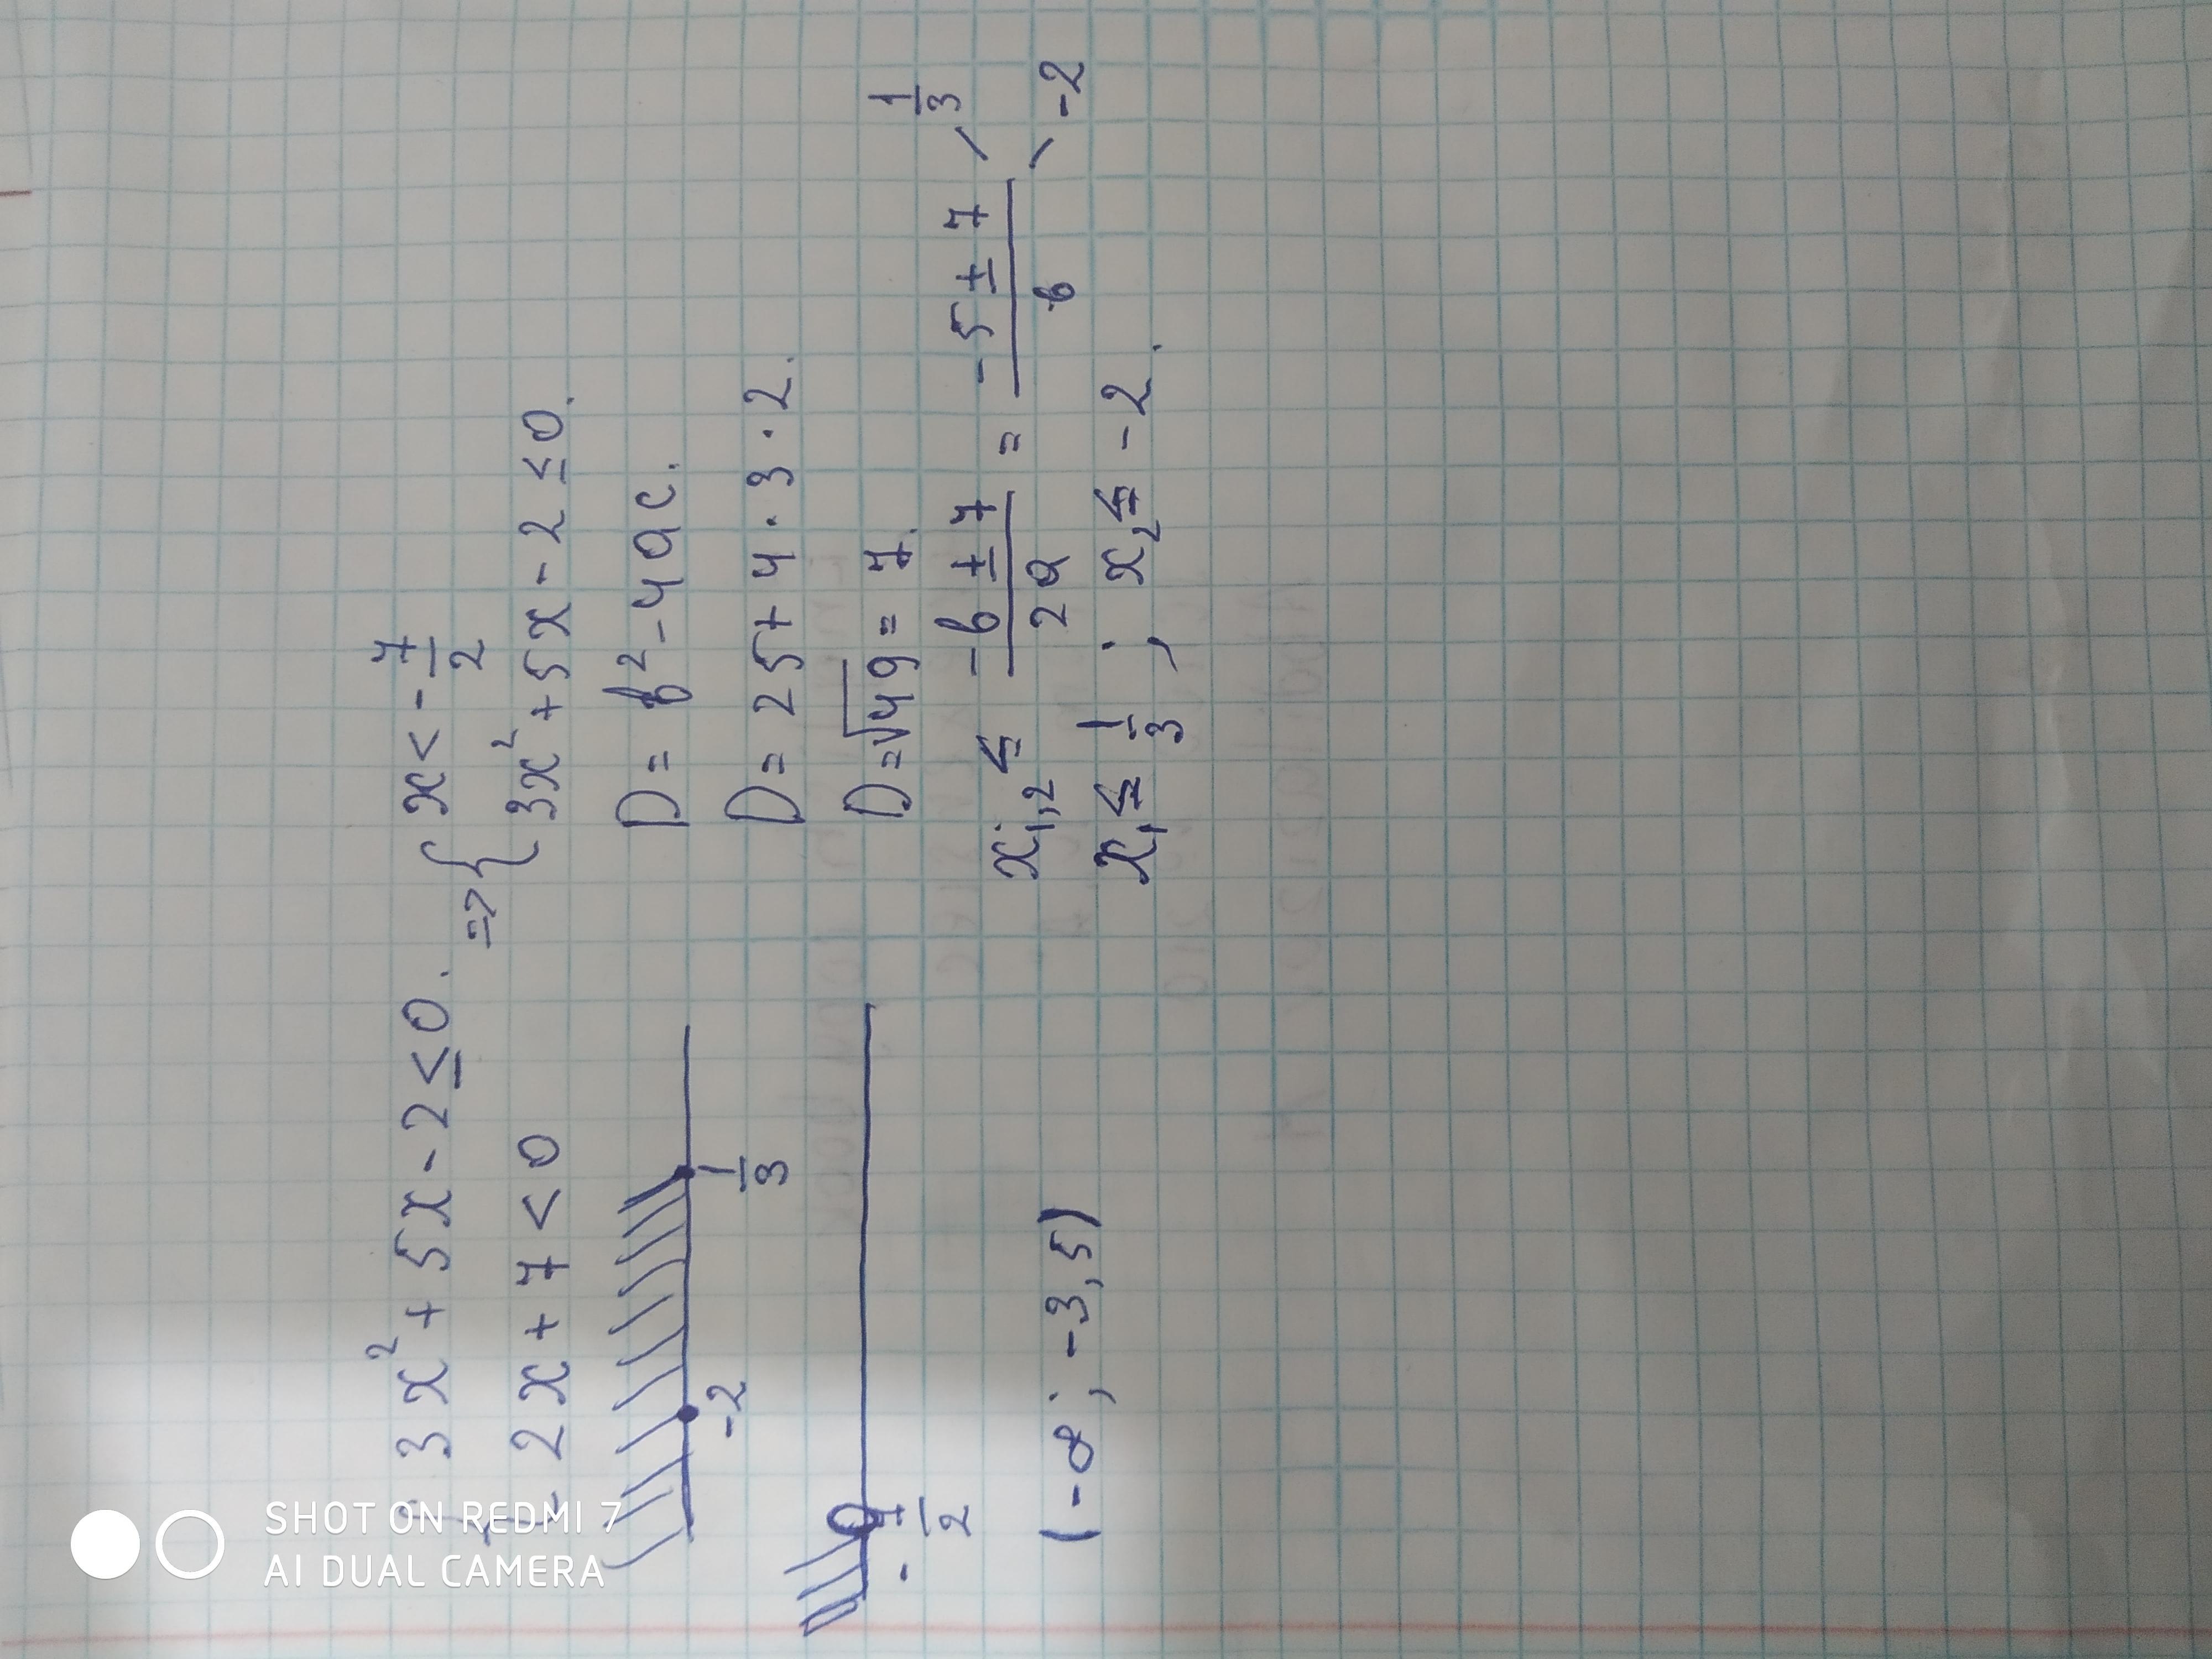 { 3x² + 5x - 2 ≤ 0.
- 2x + 7 < 0
=> { x < - 7/2
3x² + 5x - 2 ≤ 0.
D = b² - 4ac.
D = 25 + 4 · 3 · 2.
D = √49 = 7.
x₁,₂ ≤ (-b ± 7)/2a = (-5 ± 7)/6 1/3 -2
x₁ ≤ 1/3 ; x₂ ≤ -2.
-2 1/3
- 7/2
(-∞; -3,5)
SHOT ON REDMI 7
AI DUAL CAMERA